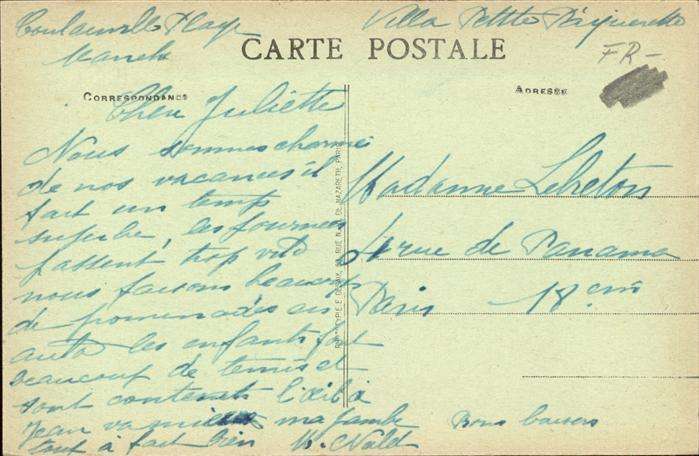 Coutainville Plage
Manche
Villa Petite Pâquerette
CARTE POSTALE
FR-
CORRESPONDANCE
ADRESSE
Chère Juliette
Nous sommes charmés
de nos vacances il
fait un temps
superbe, les journées
passent trop vite
nous faisons beaucoup
de promenades en
auto les enfants font
beaucoup de tennis et
sont contents
Jean va mieux ma jambe
tout à fait bien
Madame Lebreton
rue de Panama
Paris 18 em
Bons baisers